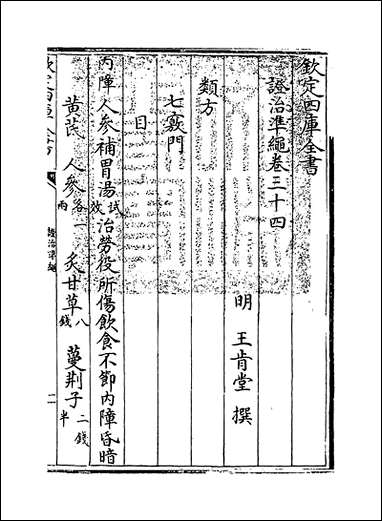 欽定四庫全書
證治準繩卷三十四
明 王肯堂 撰
類方
七竅門
目
内障 人參補胃湯 試效 治勞役所傷飲食不節内障昏暗
黄芪 人參 各一兩 炙甘草 八錢 蔓荆子 二錢半
欽定四庫全書
證治準繩
一